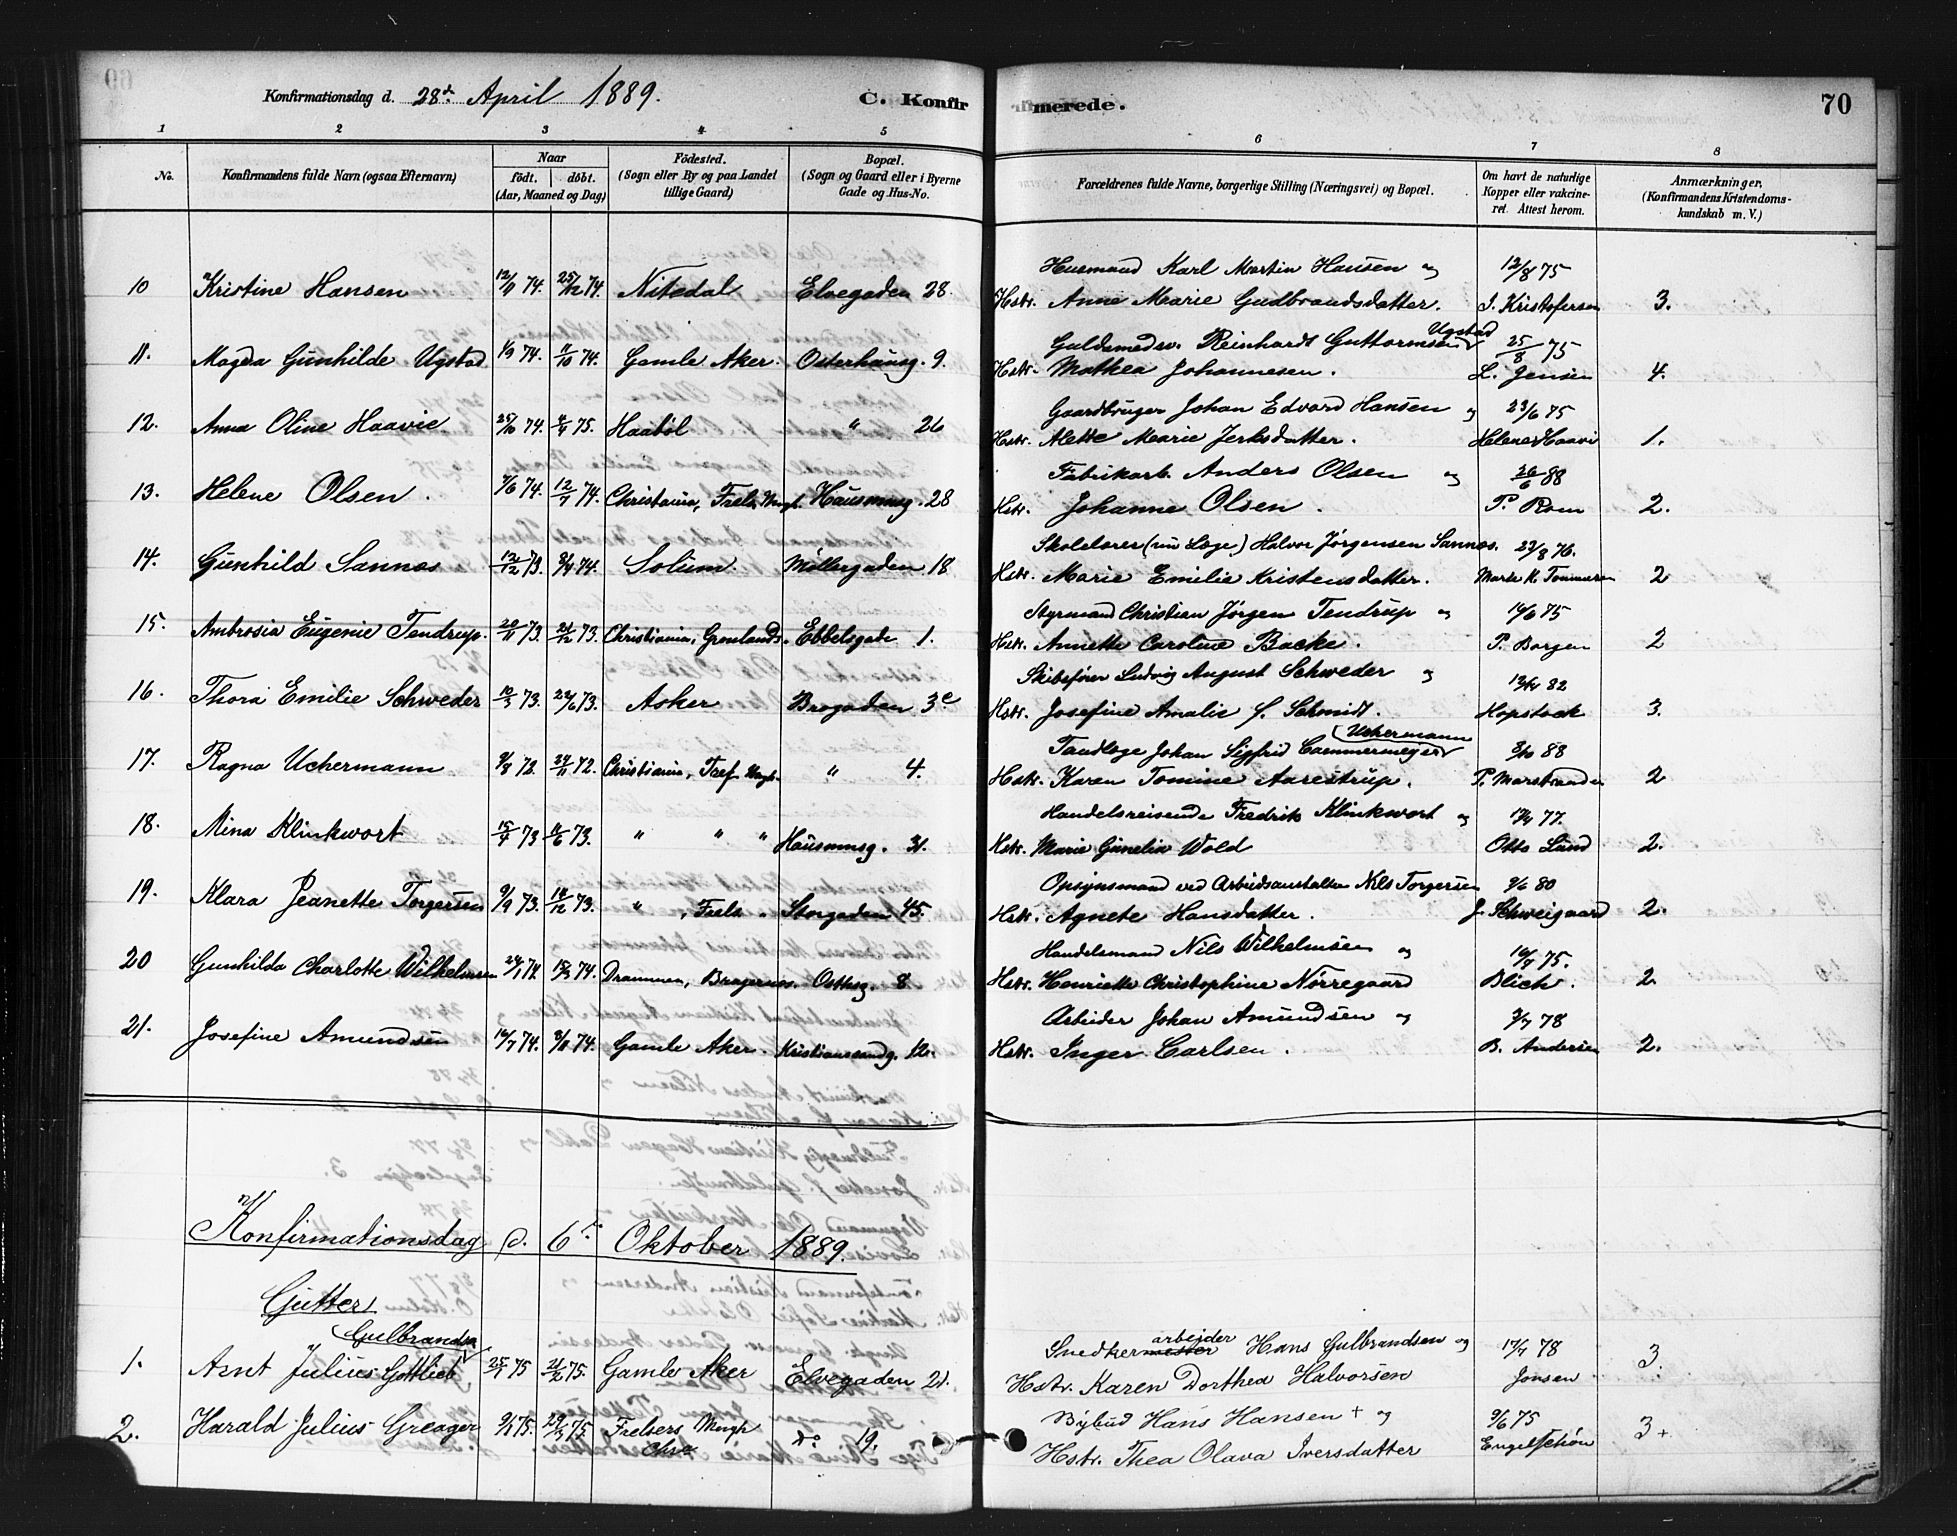 Konfirmationsdag d. 28de April 1889. C. Konfirmerede. 70
1 2 3 4 5 6 7 8
No. Konfirmandens fulde Navn (ogsaa Efternavn) Naar født. døbt. (Aar, Maaned og Dag) Fødested. (Sogn eller By og paa Landet tillige Gaard) Bopæl. (Sogn og Gaard eller i Byerne Gade og Hus-No. Forældrenes fulde Navne, borgerlige Stilling (Næringsvei) og Bopæl. Om havt de naturlige Kopper eller vakcineret. Attest herom. Anmærkninger. (Konfirmandens Kristendomskundskab m. V.)
Husmand Karl Martin Hansen og 12/8 75
10 Kristine Hansen 12/11 74. 25/12 74. Nitedal Elvegaden 28. Hstr. Anne Marie Gudbrandsdatter. J. Kristofersen 3.
Guldsmedsv. Reinhardt Guttormsen Ugstad 25/8 75
11. Magda Gunhilde Ugstad 1/9 74. 11/10 74. Gamle Aker. Osterhausg. 9. Hstr. Mathea Johannesen. L. Jensen 4.
Gaardbruger Johan Edvard Hansen og 23/6 75
12. Anna Oline Haavie 25/10 74. 4/4 75. Haabøl " 26 Hstr. Alette Marie Jerksdatter. Helene Haavi 1.
Fabrikarb. Anders Olsen og 26/6 88
13. Helene Olsen. 7/6 74. 12/7 74. Christiania, Frels. Mngh. Hausmnsg. 28 Hstr. Johanne Olsen. P. Rom 2.
Skolelærer (nu Læge) Halvor Jørgensen Sannæs. 23/8 76.
14. Gunhild Sannæs 12/12 73. 8/4 74. Solum Møllergaden 18 Hstr. Marie Emilie Kristensdatter. 2
Styrmand Christian Jørgen Tendrup og 14/6 75
15. Ambrosia Eugenie Tendrup. 20/11 73. 21/12 73. Christiania, Grønlands. Ebbelsgade 1. Hstr. Annette Caroline Backe. P. Borgen 2
Skibsfører Ludvig August Schweder og 13/4 82
16. Thora Emilie Schweder 10/3 73. 22/6 73. Asker Brogaden 3c Hstr. Josefine Amalie J. Schmidt. Hopstock 3.
Tandlæge Johan Sigfrid Cammermeyer Uchermann 3/10 88
17. Ragna Uchermann 9/8 72. 24/11 72. Christiania, Tref. Mngh. " 4. Hstr. Karen Tomine Aarestrup. P. Marstrander 2
Handelsreisende Fredrik Klinkwort og 17/4 77.
18. Mina Klinkwort 15/4 73 11/6 73. " " " Hausmnsg. 31. Hstr. Marie Gunelia Wold Otto Lund 2.
Opsynsmand ved Arbeidsanstalten Nils Torgersen 9/6 80
19. Klara Jeanette Torgersen 9/9 73. 18/12 73. " , Frels. " Storgaden 45. Hstr. Agnete Hansdatter. J. Schweigaard 2.
Handelsmand Nils Wilhelmsen og 10/9 75.
20 Gunhilda Charlotte Wilhelmsen 24/1 74. 15/3 74. Drammen, Bragernæs. Osthsg. 8 Hstr. Henriette Christophine Nørregaard Blich. 2.
Arbeider Johan Amundsen og 3/7 78
21. Josefine Amundsen 16/7 74. 8/11 74. Gamle Aker. Kristianssandg. 12. Hstr. Inger Carlsen. B. Andersen 2.
Konfirmationsdag d. 6te Oktober 1889.
Gutter
Gulbrandsn Snedkermester arbejder Hans Gulbrandsen og 17/4 78
1. Arnt Julius Gottlieb 25/1 75 21/2 75. Gamle Aker Elvegaden 21. Hstr. Karen Dorthea Halvorsen Jonsen 3.
Bybud Hans Hansen + og 9/6 75
2. Harald Julius Greager 9/1 75. 29/3 75 Frelsers Mengh Chra do 19. Hstr. Thea Olava Iversdatter Engelschøn 3+